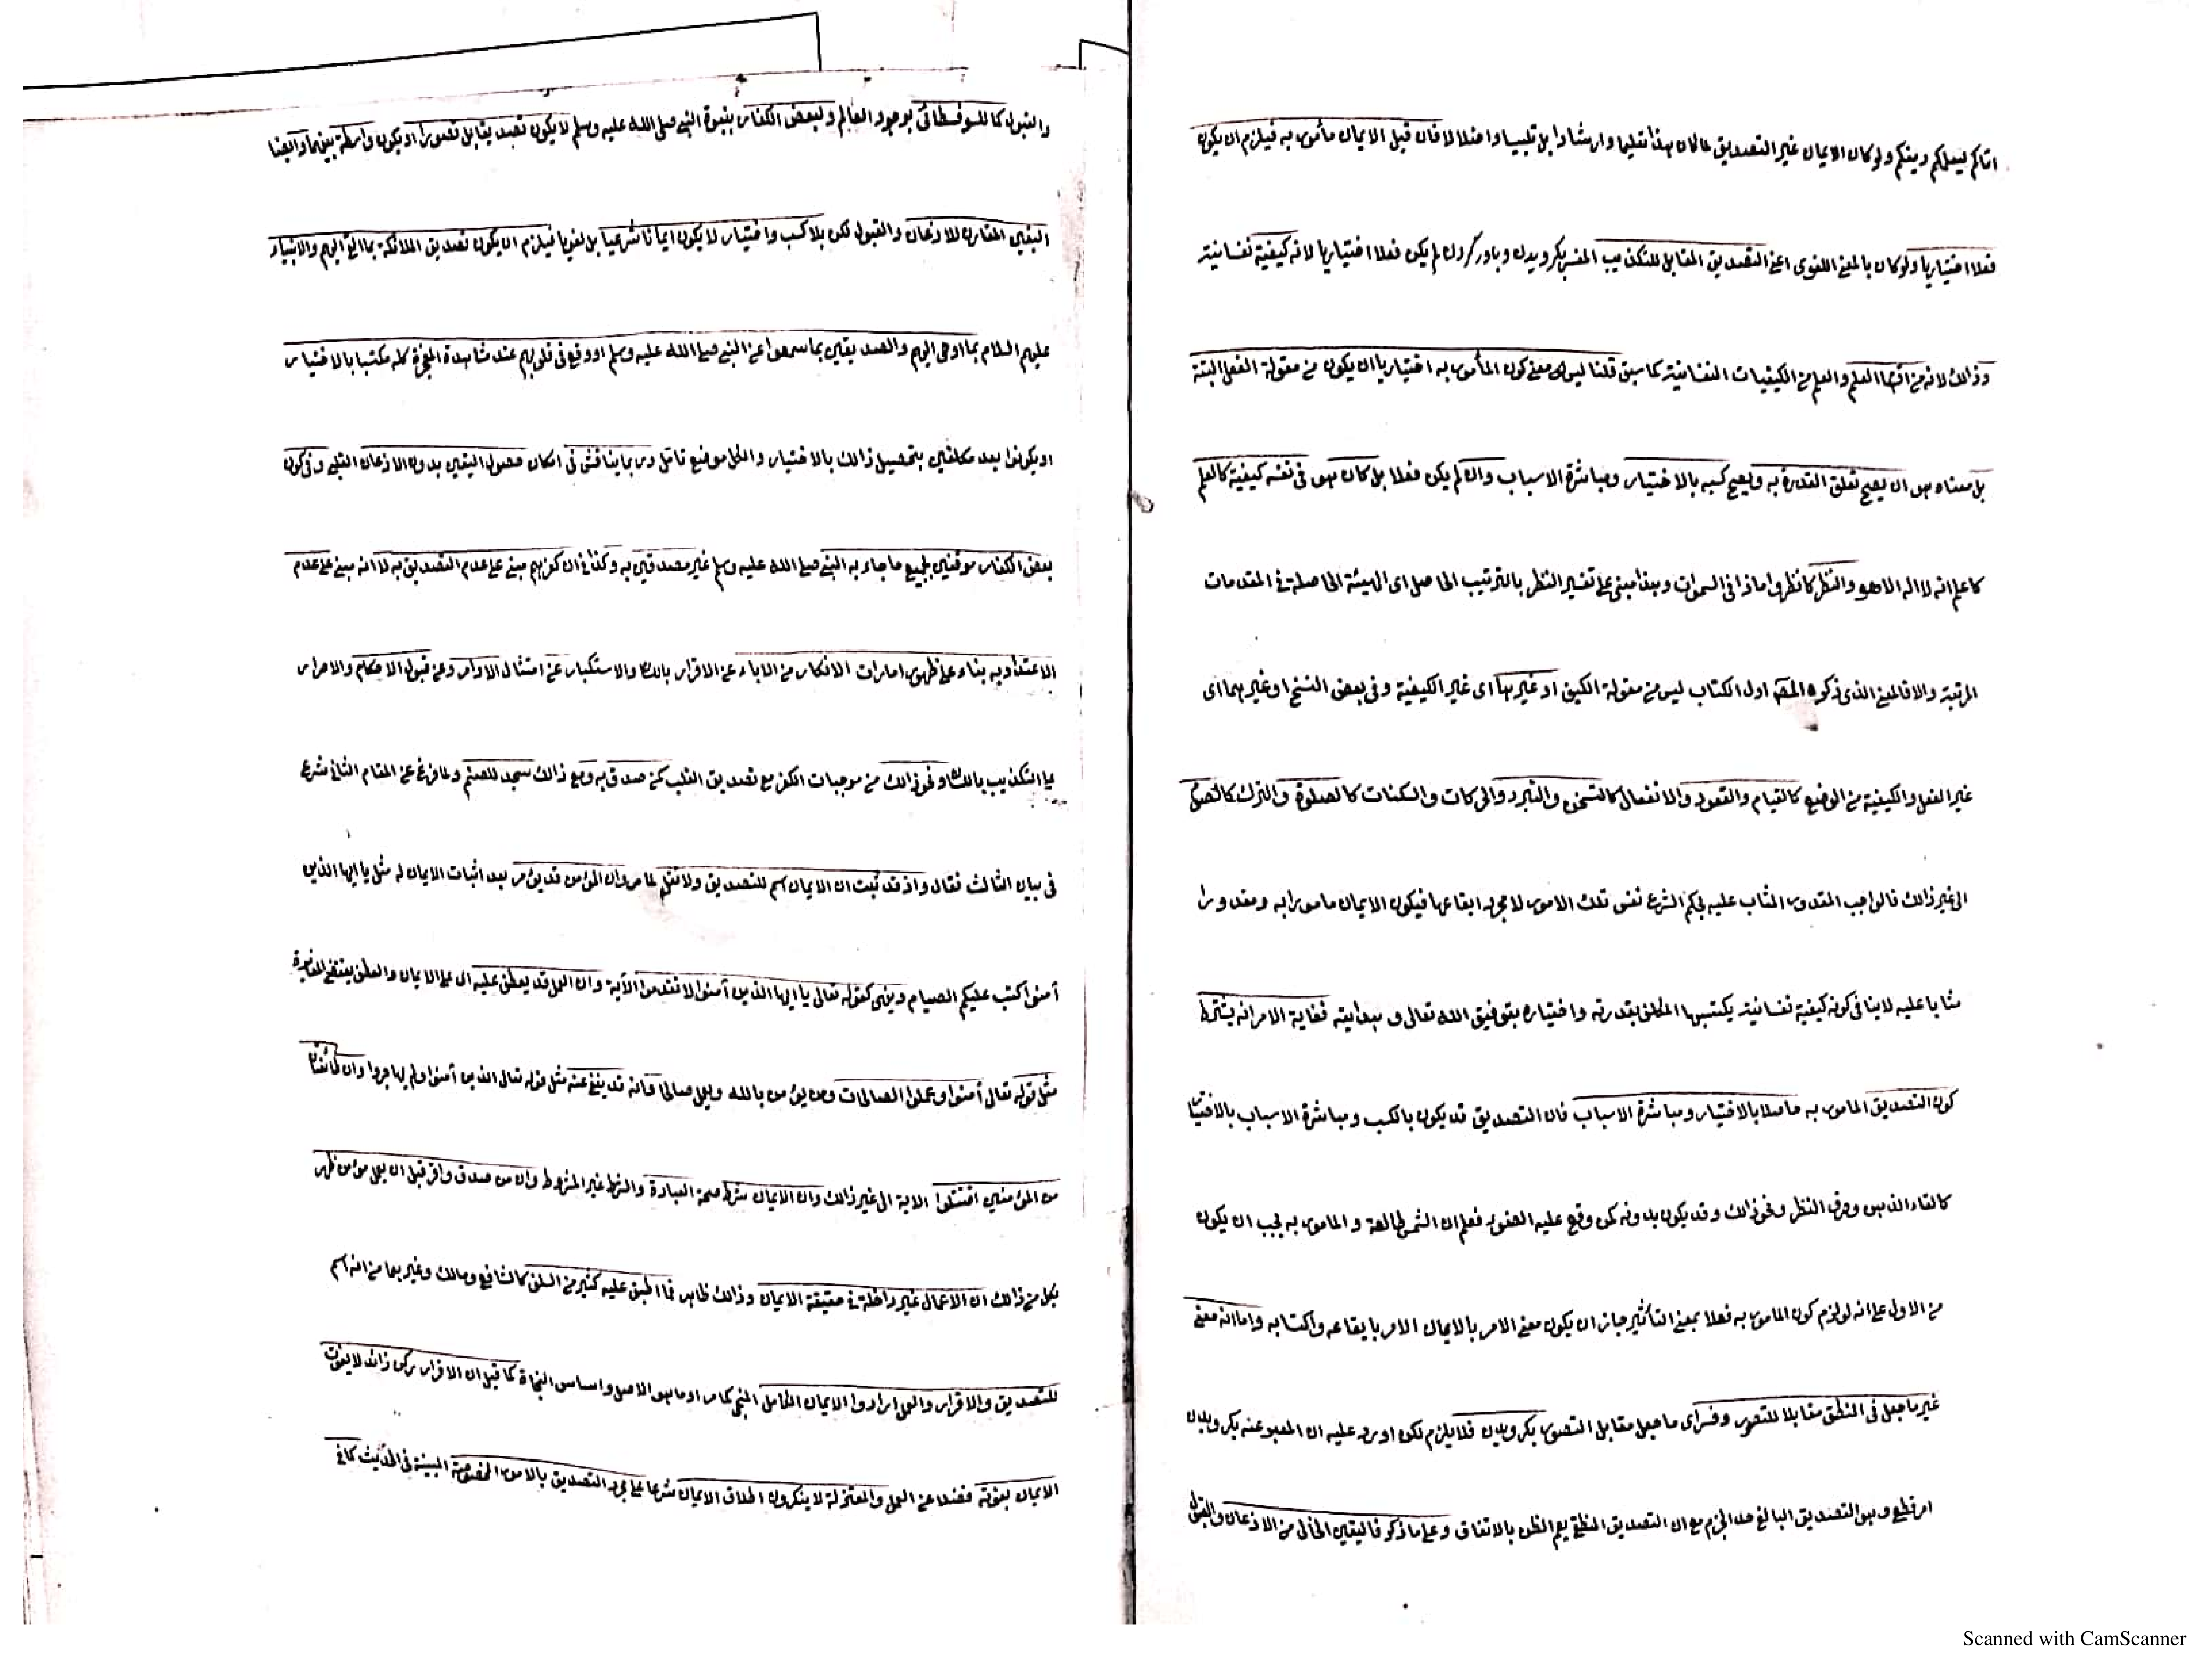 اتاكم ليعلمكم دينكم ولو كان الايمان غير التصديق لما كان هذا تعليما وارشادا بل تلبيسا واضلالا فان قيل الايمان مأمور به فيلزم ان يكون
فعلا اختياريا ولو كان بالمعنى اللغوى اعنى التصديق المقابل للتكذيب المفسر بكرويدن وباور كردن لم يكن فعلا اختياريا لانه كيفية نفسانية
وذالك لانه من اقسام العلم والعلم من الكيفيات النفسانية كما سبق قلنا ليس معنى كون المأمور به اختياريا ان يكون من مقولة الفعل البتة
بل معناه هو ان يصح تعلق القدرة به ويصح كسبه بالاختيار ومباشرة الاسباب وان لم يكن فعلا بل كان هو فى نفسه كيفية كالعلم
كاعلم انه لا اله الا هو والنظر كانظروا ماذا فى السموات وهذا مبنى على تفسير النظر بالترتيب الحاصل اى الهيئة الحاصلة فى المقدمات
المرتبة والا فالمعنى الذى ذكره المصـ اول الكتاب ليس من مقولة الكيف او غيرها اى غير الكيفية وفى بعض النسخ او غيرهما اى
غير الفعل والكيفية من الوضع كالقيام والقعود والانفعال كالتسخن والتبرد والحركات والسكنات كالصلوة والترك كالصوم
الى غير ذالك فالواجب المقدور المثاب عليه بحكم الشرع نفس تلك الامور لا مجرد ايقاعها فيكون الايمان مامورا به ومقدورا
مثابا عليه لا ينافى كونه كيفية نفسانية يكتسبها المكلف بقدرته واختياره بتوفيق الله تعالى وهدايته فغاية الامر انه يشترط
كون التصديق المامور به حاصلا بالاختيار ومباشرة الاسباب فان التصديق قد يكون بالكسب ومباشرة الاسباب بالاختيار
كالقاء الذهن وصرف النظر ونحو ذالك وقد يكون بدونه كمن وقع عليه الضوء فعلم ان الشمس طالعة والمامور به يجب ان يكون
من الاول على انه لو لزم كون المامور به فعلا بمعنى التأثير جاز ان يكون معنى الامر بالايمان الامر بايقاعه واكتسابه واما انه معنى
غير ما جعل فى المنطق مقابلا للتصور وفسر اى ما جعل مقابل التصور بكرويدن فلا يلزم لكن اورد عليه ان المعبر عنه بكرويدن
امر قطعى وهو التصديق البالغ حد الجزم مع ان التصديق المنطقى يعم الظن بالاتفاق وعلى ما ذكر فاليقين الخالى من الاذعان والقبول
والقبول كما للسوفسطائى بوجود العالم ولبعض الكفار بنبوة النبى صلى الله عليه وسلم لا يكون تصديقا بل تصورا او يكون واسطة بينهما وايضا
اليقين المقارن للاذعان والقبول لكن بلا كسب واختيار لا يكون ايمانا شرعيا بل لغويا فيلزم ان يكون تصديق الملائكة بما القى اليهم والانبياء
عليهم السلام بما اوحى اليهم والصديقين بما سمعوا عن النبى صلى الله عليه وسلم او وقع فى قلوبهم عند مشاهدة المعجزة كله مكتسبا بالاختيار
او يكونوا بعد مكلفين بتحصيل ذالك بالاختيار والكل موضع تامل وربما يناقش فى امكان حصول اليقين بدون الاذعان القلبى وفى كون
بعض الكفار موقنين بجميع ما جاء به النبى صلى الله عليه وسلم غير مصدقين به وكذا فى ان كفرهم مبنى على عدم التصديق به لا انه مبنى على عدم
الاعتداد به بناء على ظهور امارات الانكار من الاباء عن الاقرار باللسان والاستكبار عن امتثال الاوامر وعن قبول الاحكام والاصرار
على التكذيب باللسان ونحو ذالك من موجبات الكفر مع تصديق القلب كمن صدق به ومع ذالك سجد للصنم ولما فرغ عن المقام الثانى شرع
فى بيان الثالث فقال واذ قد ثبت ان الايمان اسم للتصديق ولا نقل لما مر وان المؤمن قد يؤمر بعد اثبات الايمان له مثل يا ايها الذين
آمنوا كتب عليكم الصيام وينهى كقوله تعالى يا ايها الذين آمنوا لا تقدموا الآية وان العمل قد يعطف عليه اى على الايمان والعطف يقتضى المغايرة
مثل قوله تعالى آمنوا وعملوا الصالحات ومن يؤمن بالله ويعمل صالحا وانه قد ينفى عنه مثل قوله تعالى الذين آمنوا ولم يهاجروا وان طائفتان
من المؤمنين اقتتلوا الاية الى غير ذالك وان الايمان شرط صحة العبادة والشرط غير المشروط وان من صدق واقر قبل ان يعمل مؤمن ظهر
بكل من ذالك ان الاعمال غير داخلة فى حقيقة الايمان وذالك ظاهر فما اطبق عليه كثير من السلف كالشافعى ومالك وغيرهما من انه اسم
للتصديق والاقرار والعمل ارادوا الايمان الكامل المنجى كما مر او ما هو الاصل واساس النجاة كما قيل ان الاقرار ركن زائد لا يفوت
الايمان بفوته فضلا عن العمل والمعتزلة لا ينكرون اطلاق الايمان شرعا على مجرد التصديق بالامور المخصوصة المبينة فى الحديث كما فى
Scanned with CamScanner